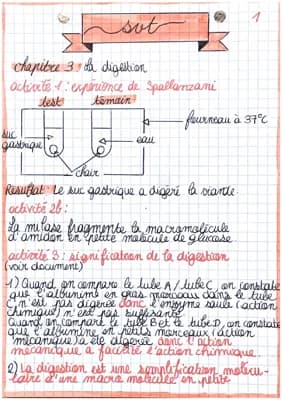 svt
1
chapitre 3 : la digestion
activité 1 : expérience de Spallanzani
test témoin
fourneau à 37°C
suc
gastrique
eau
chair
Resultat : Le suc gastrique a digéré la viande.
activité 2b :
La milase fragmente la macromolécule
d'amidon en petite molécule de glucose.
activité 3 : signification de la digestion
(voir document)
1) Quand on compare le tube A / tube C, on constate
que l'albumine en gros morceaux dans le tube
C n'est pas digérée donc l'enzyme seule (action
chimique) n'est pas suffisante.
Quand on compart le tube B et le tube D, on constate
que l'albumine en petits morceaux (action
mécanique) a été digérée donc l'action
mécanique a facilité l'action chimique.
2) La digestion est une simplification molécu-
laire d'une macro molécule en petite